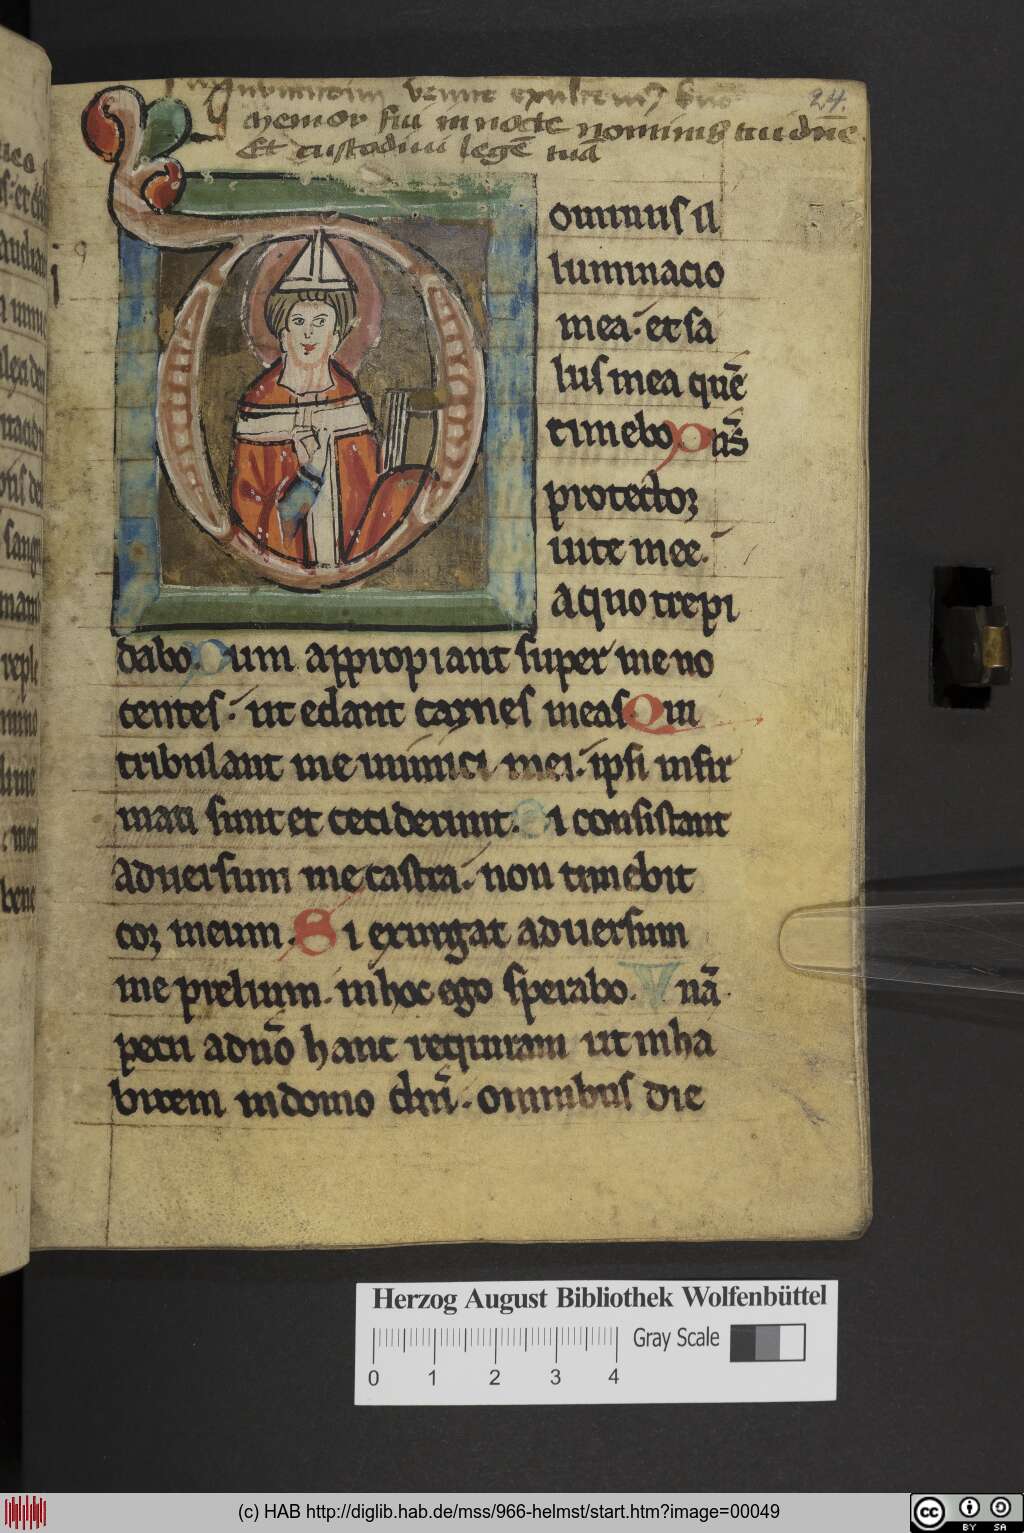 venite exultem9
24.
Memor fui in nocte nominis tui dn̄e
Et custodiui legē tuā
ominus il
luminacio
mea. et sa
lus mea quē
timebo Dn̄s
protector
uite mee.
a quo trepi
dabo. Dum appropiant super me no
centes. ut edant carnes meas Qui
tribulant me inimici mei. ipsi infir
mati sunt et ceciderunt. Si consistant
aduersum me castra. non timebit
cor meum. Si exurgat aduersum
me prelium. in hoc ego sperabo. Vnā
pecii a dn̄o hanc requiram ut inha
bitem in domo dn̄i. omnibus die
Herzog August Bibliothek Wolfenbüttel
Gray Scale
0 1 2 3 4
(c) HAB http://diglib.hab.de/mss/966-helmst/start.htm?image=00049
cc BY SA